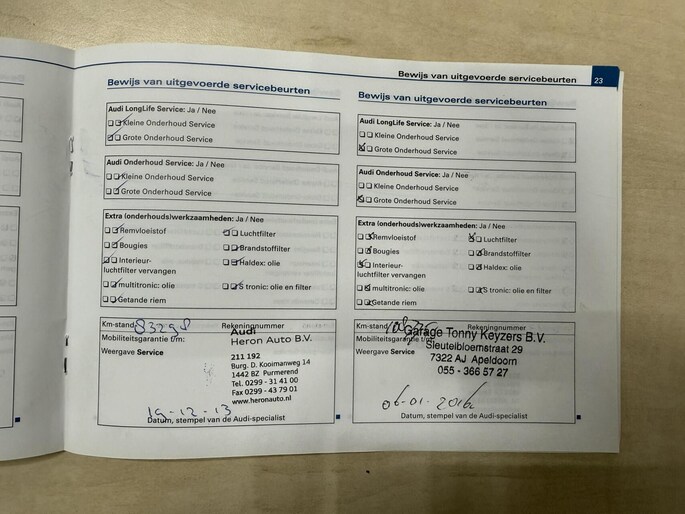 Bewijs van uitgevoerde servicebeurten 23
Bewijs van uitgevoerde servicebeurten
Audi LongLife Service: Ja / Nee
Kleine Onderhoud Service
Grote Onderhoud Service
Audi Onderhoud Service: Ja / Nee
Kleine Onderhoud Service
Grote Onderhoud Service
Extra (onderhouds)werkzaamheden: Ja / Nee
Remvloeistof
Luchtfilter
Bougies
Brandstoffilter
Interieur-
luchtfilter vervangen
Haldex: olie
multitronic: olie
S tronic: olie en filter
Getande riem
Km-stand 83298 Rekeningnummer
Mobiliteitsgarantie t/m:
Weergave Service
Audi
Heron Auto B.V.
211 192
Burg. D. Kooimanweg 14
1442 BZ Purmerend
Tel. 0299 - 31 41 00
Fax 0299 - 43 79 01
www.heronauto.nl
19-12-13
Datum, stempel van de Audi-specialist
Bewijs van uitgevoerde servicebeurten
Audi LongLife Service: Ja / Nee
Kleine Onderhoud Service
Grote Onderhoud Service
Audi Onderhoud Service: Ja / Nee
Kleine Onderhoud Service
Grote Onderhoud Service
Extra (onderhouds)werkzaamheden: Ja / Nee
Remvloeistof
Luchtfilter
Bougies
Brandstoffilter
Interieur-
luchtfilter vervangen
Haldex: olie
multitronic: olie
S tronic: olie en filter
Getande riem
Km-stand Rekeningnummer
Mobiliteitsgarantie t/m:
Weergave Service
Garage Tonny Keyzers B.V.
Sleutelbloemstraat 29
7322 AJ Apeldoorn
055 - 366 57 27
06-01-2016
Datum, stempel van de Audi-specialist